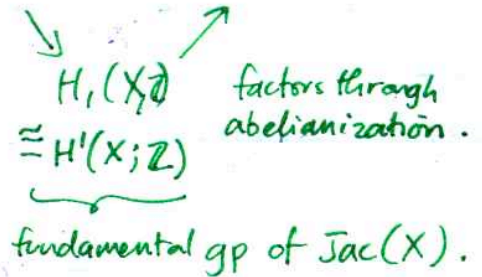 H₁(X,ℤ) factors through
abelianization.
≅ H¹(X; ℤ)
fundamental gp of Jac(X).